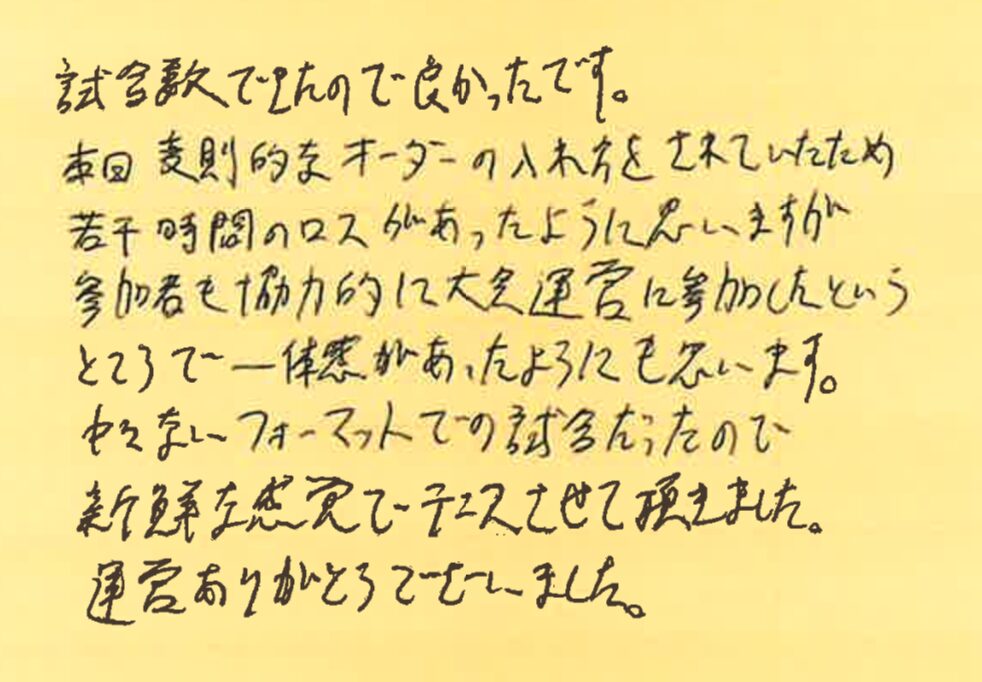 試合数できたので良かったです。
本回 変則的なオーダーの入れ方をされていたため
若干時間のロスがあったように思いますが
参加者も協力的に大会運営に参加したという
ところで一体感があったようにも思います。
中々ないフォーマットでの試合だったので
新鮮な感覚でテニスさせて頂きました。
運営ありがとうございました。